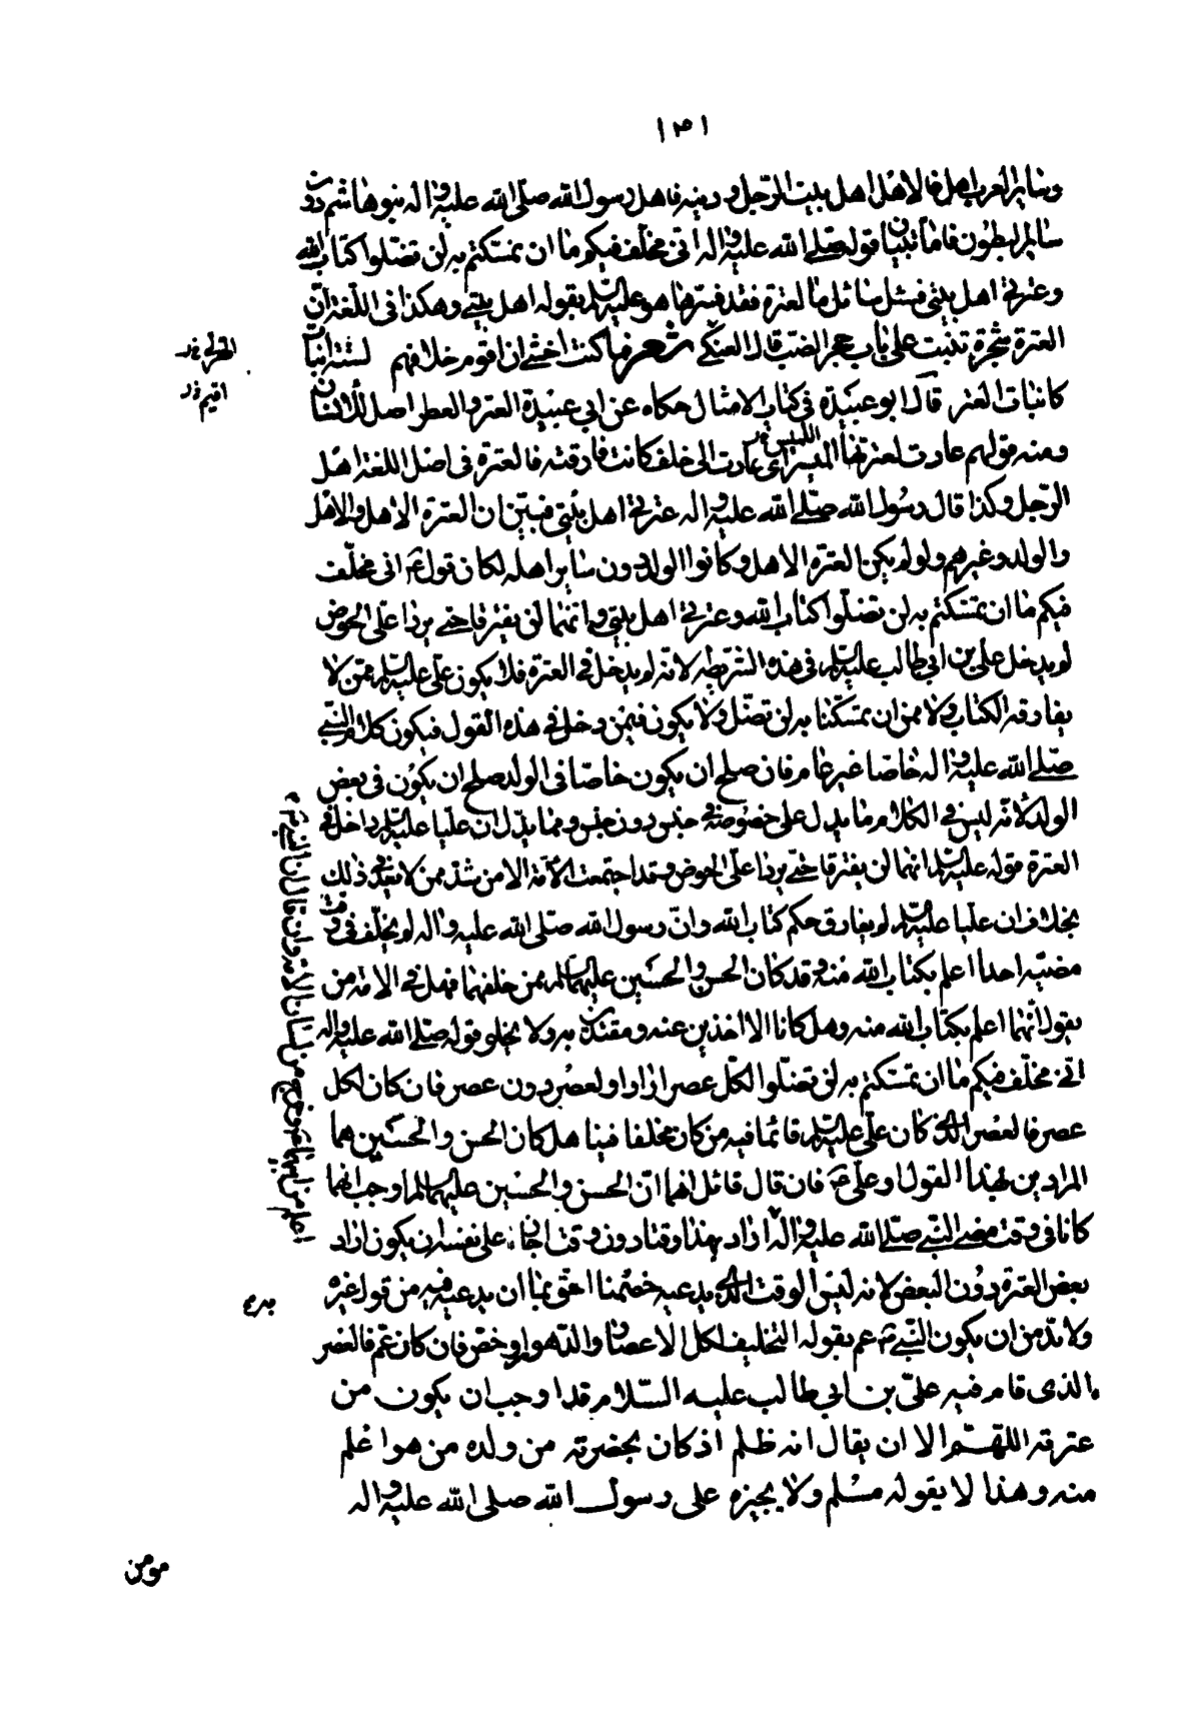 ١٣١
وسائر العرب اهل فالاهل اهل بيت الرجل ودينه فاهل رسول الله صلى الله عليه واله بنو هاشم دون
سائر البطون فاما تبيان قوله صلى الله عليه واله انى مخلف فيكم ما ان تمسكتم به لن تضلوا كتاب الله
وعترتى اهل بيتى فسئل سائل ما العترة فقد فسرها هو عليه السلام بقوله اهل بيتى وهكذا فى اللغة ان
العترة شجرة تنبت على باب حجر الضب قال شعر فما كنت اخشى ان اقوم خلافهم لستة ابيات
كما نبات العتر قال ابو عبيدة فى كتاب الامثال حكاه عن ابى عبيدة العتر والعطر اصل للانسان
ومنه قولهم عادت لعترتها لميس اى عادت الى خلف كانت فارقته فالعترة فى اصل اللغة اهل
الرجل وكذا قال رسول الله صلى الله عليه واله عترتى اهل بيتى فتبين ان العترة الاهل والاهل
والولد وغيرهم ولو لم يكن العترة الاهل وكانوا الولد دون سائر اهله لكان قوله انى مخلف
فيكم ما ان تمسكتم به لن تضلوا كتاب الله وعترتى اهل بيتى وانهما لن يفترقا حتى يردا على الحوض
لم يدخل على بن ابى طالب عليه السلام فى هذه الشريطة لانه لم يدخل فى العترة فلا يكون على عليه السلام ممن لا
يفارقه الكتاب ولا ممن ان تمسكنا به لن نضل ولا يكون فيمن دخل فى هذا القول فيكون كلام النبى
صلى الله عليه واله خاصا غير عام فان صلح ان يكون خاصا فى الولد صلح ان يكون فى بعض
الولد لانه ليس فى الكلام ما يدل على خصوصه فى جنس دون جنس ومما يدل ان عليا عليه السلام داخل فى
العترة قوله عليه السلام انهما لن يفترقا حتى يردا على الحوض وقد اجتمعت الامة الا من شذ ممن لا يعد فى ذلك
بخلاف ان عليا عليه السلام لم يفارق حكم كتاب الله وان رسول الله صلى الله عليه واله لم يخلف فى وقت
مضيه احدا اعلم بكتاب الله منه وقد كان الحسن والحسين عليهما السلام ممن خلفهما فهل فى الامة من
يقول انهما اعلم بكتاب الله منه وهل كانا الا اخذين عنه ومقتديين به ولا يخلو قوله صلى الله عليه واله
انى مخلف فيكم ما ان تمسكتم به لن تضلوا لكل عصر اراد او لعصر دون عصر فان كان لكل
عصر فالعصر الذى كان على عليه السلام قائما فيه من كان مخلفا فينا هل كان الحسن والحسين هما
المرادين لهذا القول او على فان قال قائل انهما ان الحسن والحسين عليهما السلام اوجب انهما
كانا فى وقت مضى النبى صلى الله عليه واله اراد بهذا وقتا دون وقت على نفسه ان يكون اراد
بعض العترة دون البعض لانه ليس الوقت الذى يدعيه خصمنا احق بما ان يدعيه فيه من قول غيره
ولا بد من ان يكون النبى عم بقوله التخليف لكل الاعصار والدهور او خص فان كان عم فالعصر
الذى قام فيه على بن ابى طالب عليه السلام قد اوجب ان يكون من
عترته اللهم الا ان يقال انه ظلم اذ كان بحضرته من ولده من هو اعلم
منه وهذا لا يقوله مسلم ولا يجيزه على رسول الله صلى الله عليه واله
مومن